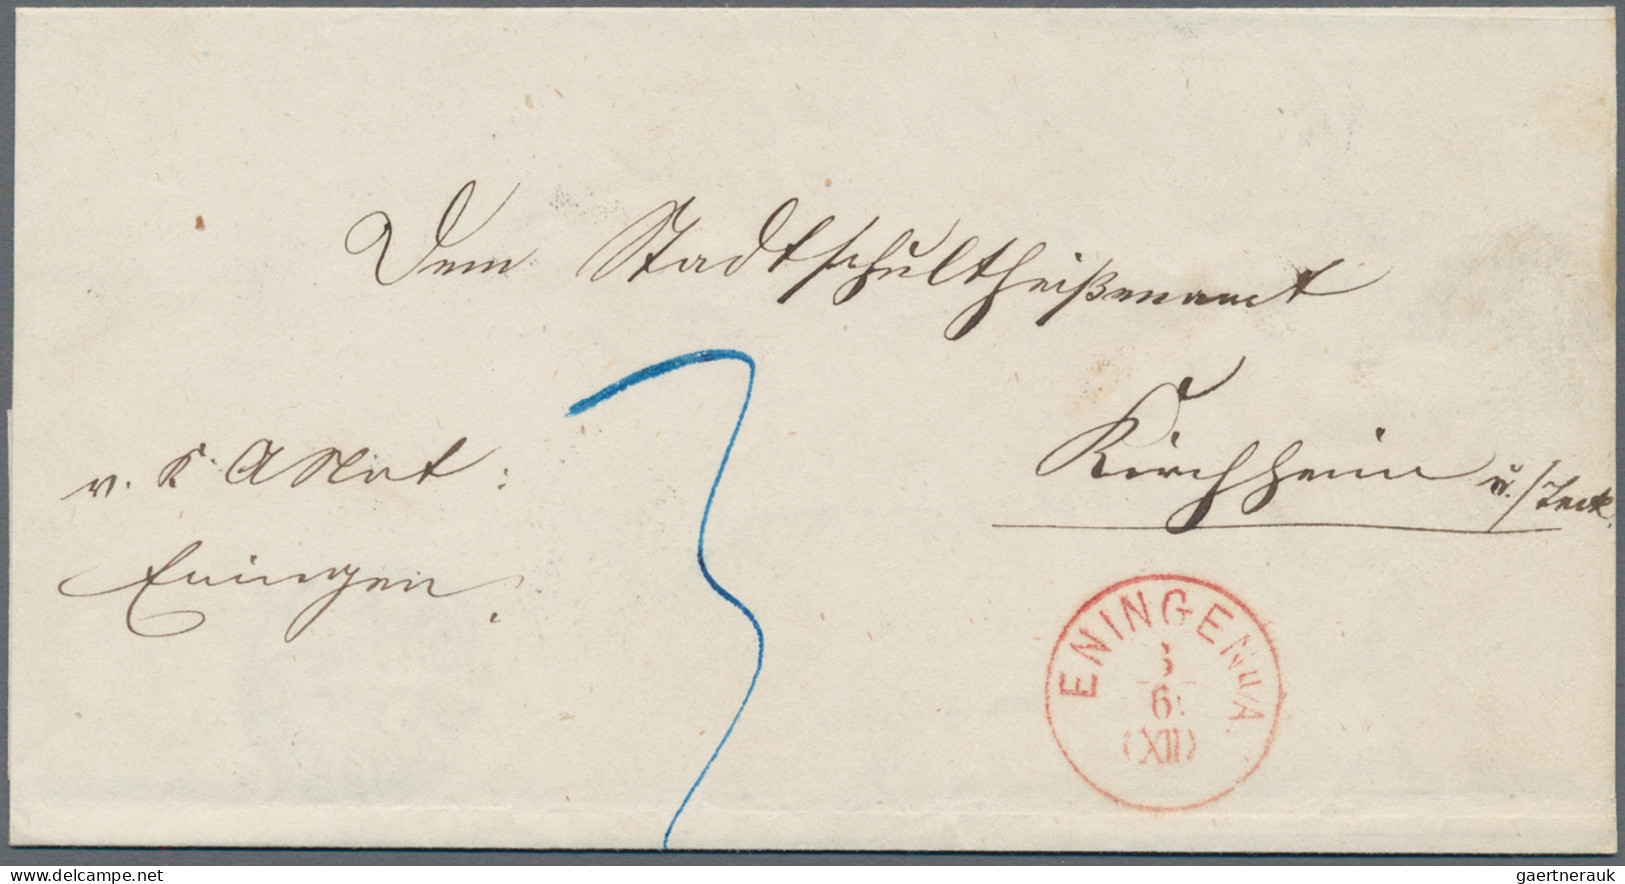 Dem Stadtschultheißenamt
Kirchheim u./Teck.
v. K. A Not :
Eningen.
3
ENINGEN u/A
6
(XII)
delcampe.net
gaertnerauk